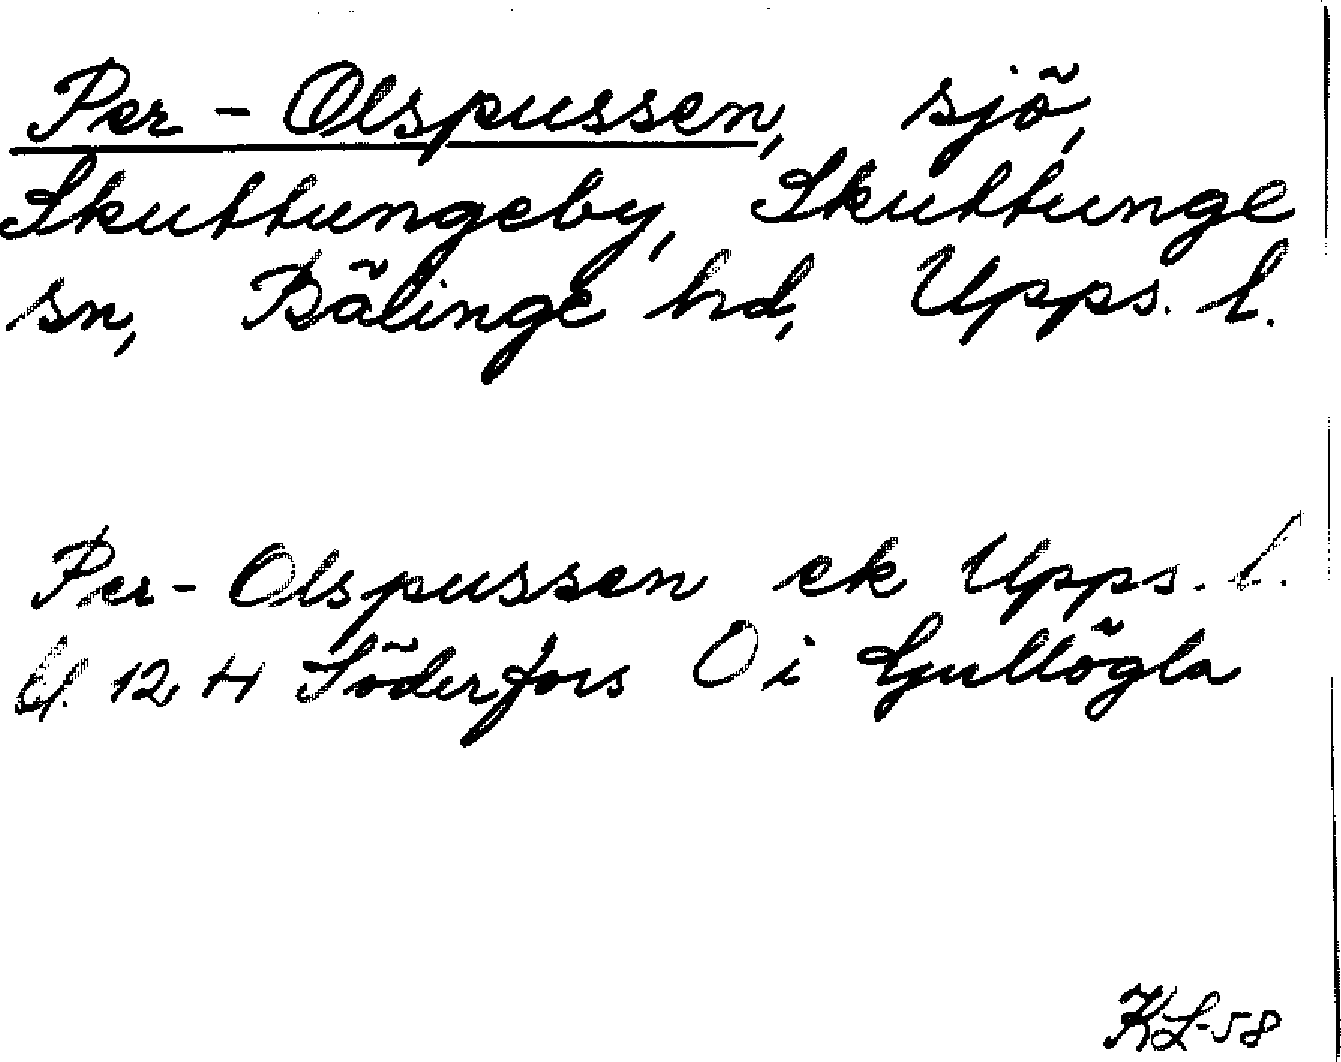 Per-Olspussen, sjö,
Skuttungeby, Skuttunge
sn, Bälinge hd, Upps. l.
Per-Olspussen ek Upps. l.
bl. 12, H Söderfors O i Gullögla
KL-58